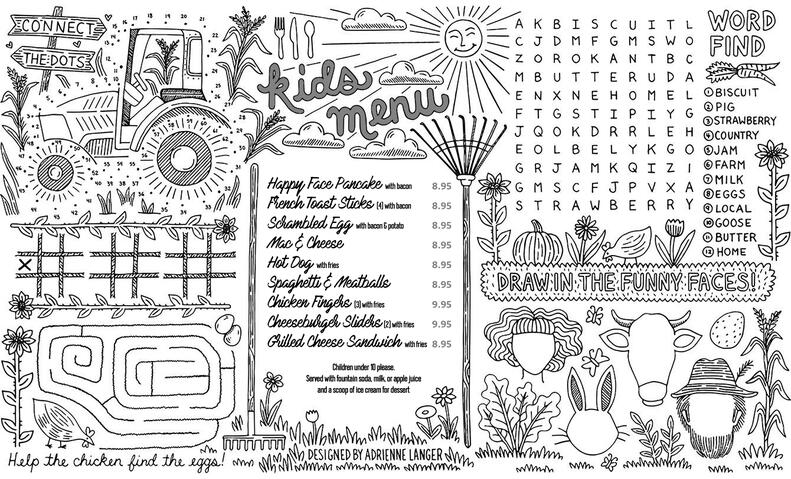 CONNECT
THE DOTS
kids
menu
Happy Face Pancake with bacon 8.95
French Toast Sticks (4) with bacon 8.95
Scrambled Egg with bacon & potato 8.95
Mac & Cheese 8.95
Hot Dog with fries 8.95
Spaghetti & Meatballs 8.95
Chicken Fingers (3) with fries 9.95
Cheeseburger Sliders (2) with fries 9.95
Grilled Cheese Sandwich with fries 8.95
Children under 10 please.
Served with fountain soda, milk, or apple juice
and a scoop of ice cream for dessert
DESIGNED BY ADRIENNE LANGER
X
Help the chicken find the eggs!
A K B I S C U I T L
C J D M F G M S W O
Z O R O K A N T B C
M B U T T E R U D A
E N X N E H O M E L
F T G S T I P I Y G
J Q O K D R R L E H
E O L B E L Y K G O
G R J A M K Q I Z I
G M S C F J P V X A
S T R A W B E R R Y
WORD
FIND
1 BISCUIT
2 PIG
3 STRAWBERRY
4 COUNTRY
5 JAM
6 FARM
7 MILK
8 EGGS
9 LOCAL
10 GOOSE
11 BUTTER
12 HOME
DRAW IN THE FUNNY FACES!